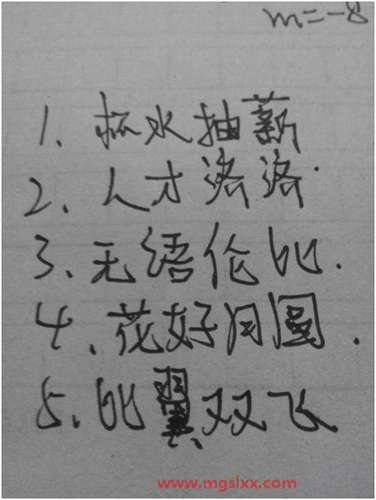 m=-8
1、杯水抽薪
2、人才济济.
3、无语伦比.
4、花好月圆.
5、比翼双飞
www.mgslxx.com